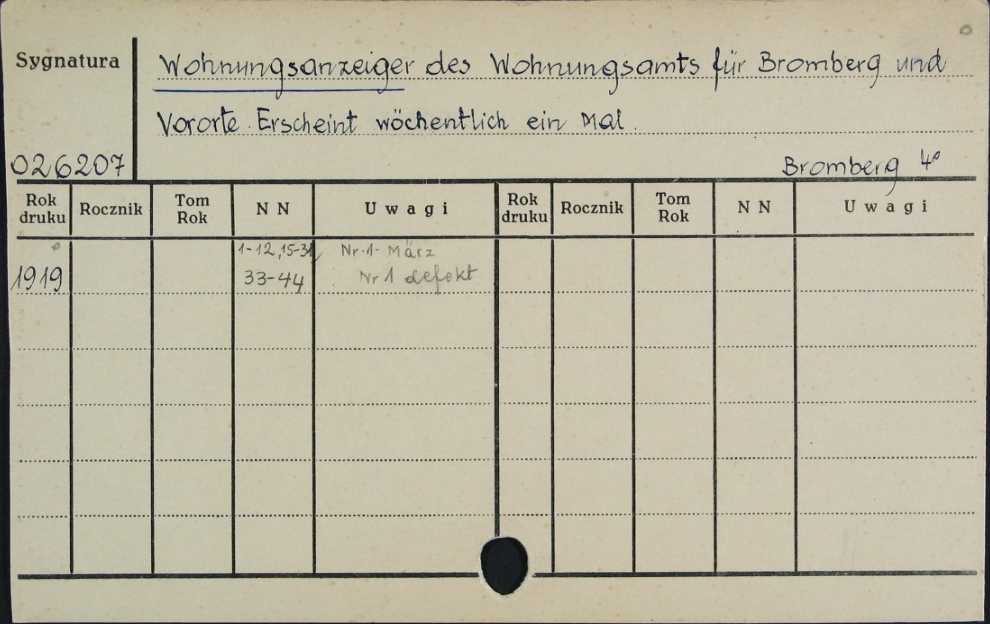 Sygnatura
Wohnungsanzeiger des Wohnungsamts für Bromberg und
Vororte. Erscheint wöchentlich ein Mal.
026207
Bromberg 4°
Rok druku Rocznik Tom Rok N N Uwagi Rok druku Rocznik Tom Rok N N Uwagi
1-12, 15-31, Nr. 1 - März
1919 33-44 Nr 1 defekt